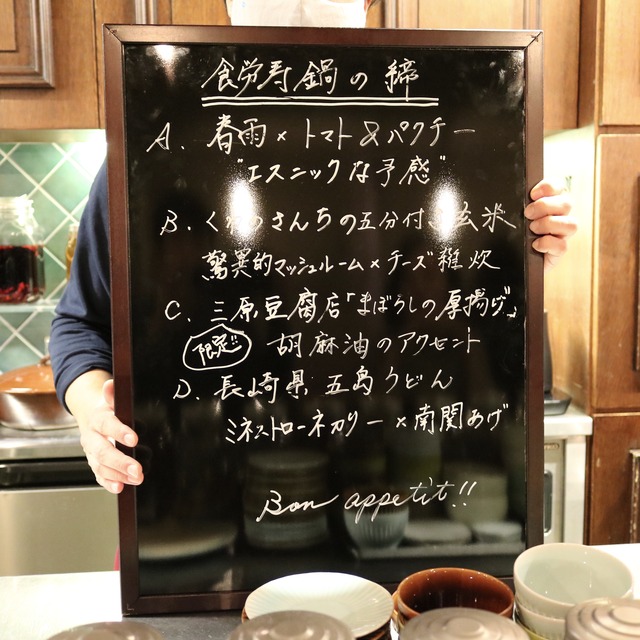 食労寿鍋の締
A. 春雨×トマト&パクチー
"エスニックな予感"
B. くわのさんちの五分付き玄米
驚異的マッシュルーム×チーズ雑炊
C. 三原豆腐店「まぼろしの厚揚げ」
限定!! 胡麻油のアクセント
D. 長崎県 五島うどん
ミネストローネカリー×南関あげ
Bon appetit!!